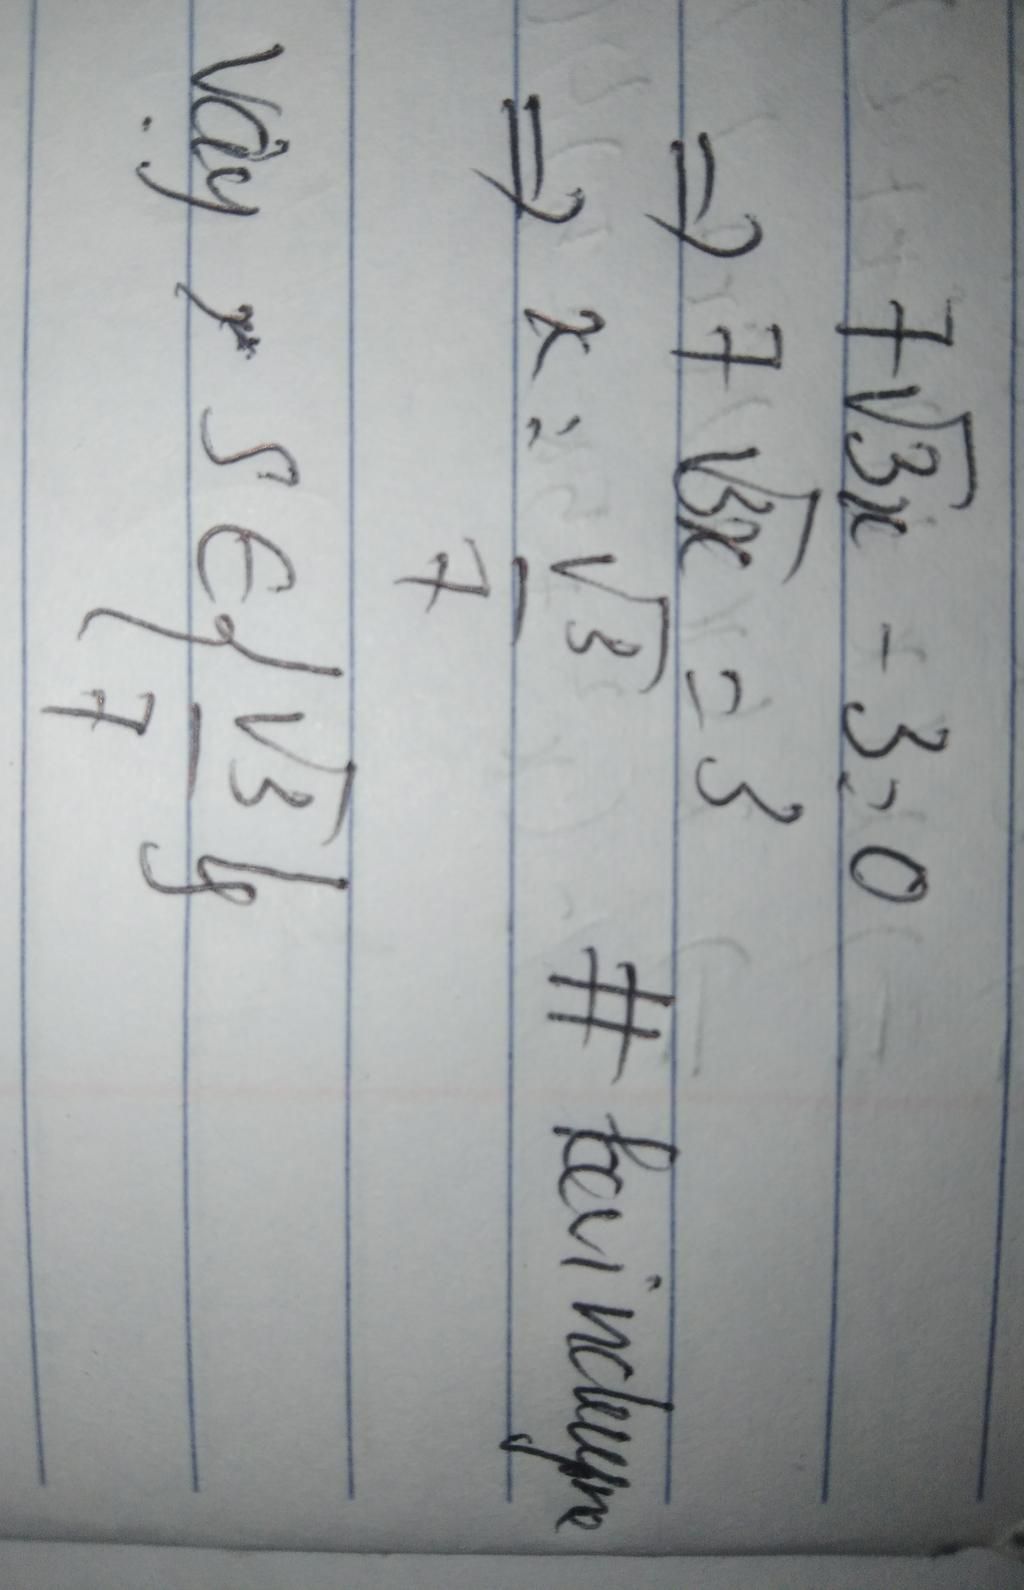 7√3x - 3 = 0
=> 7√3x = 3
=> x = √3/7
# kevincluyne
Vậy S ∈ {√3/7}